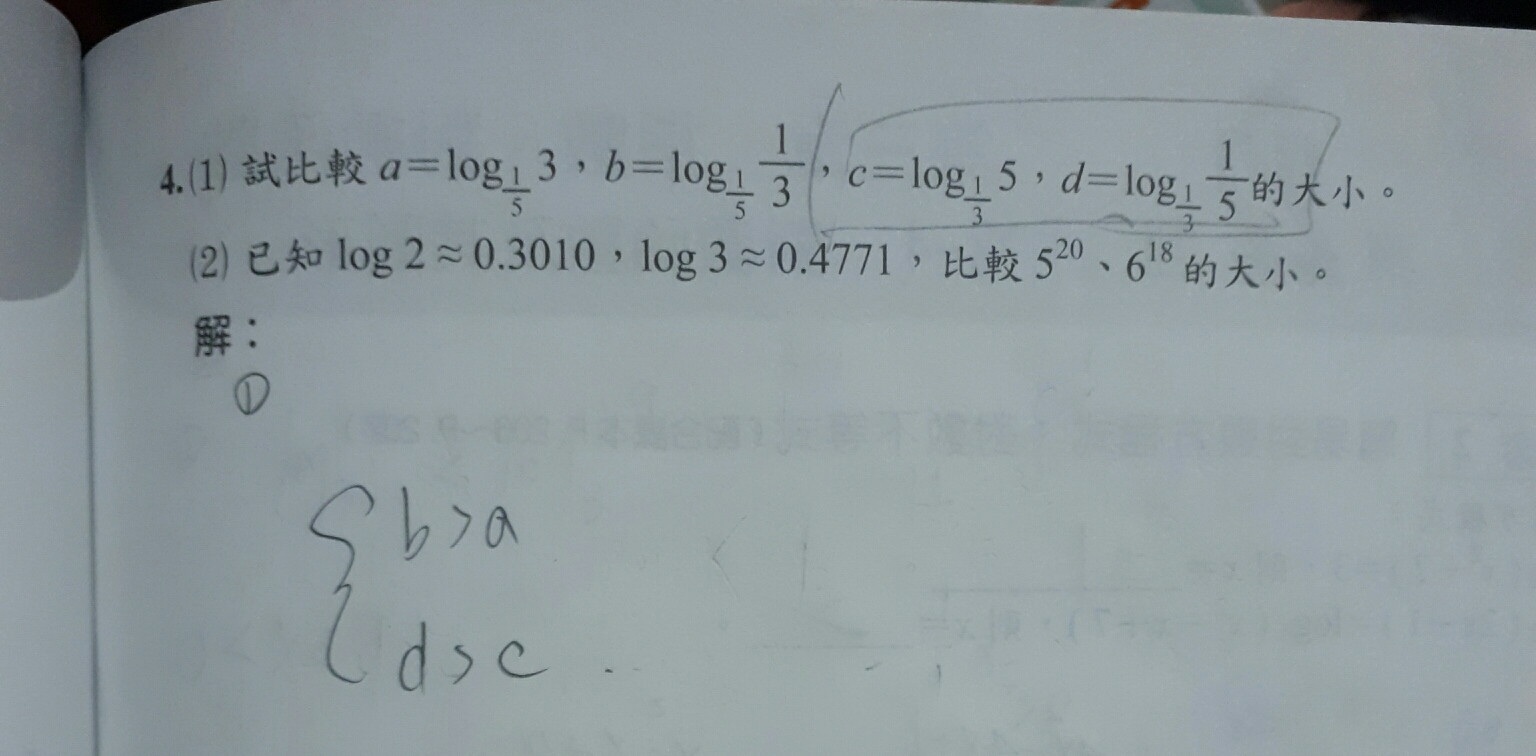 4.(1) 試比較 a=log_{1/5} 3，b=log_{1/5} 1/3，c=log_{1/3} 5，d=log_{1/3} 1/5 的大小。
(2) 已知 log 2≈0.3010，log 3≈0.4771，比較 5^{20}、6^{18} 的大小。
解：
①
{ b>a
d>c